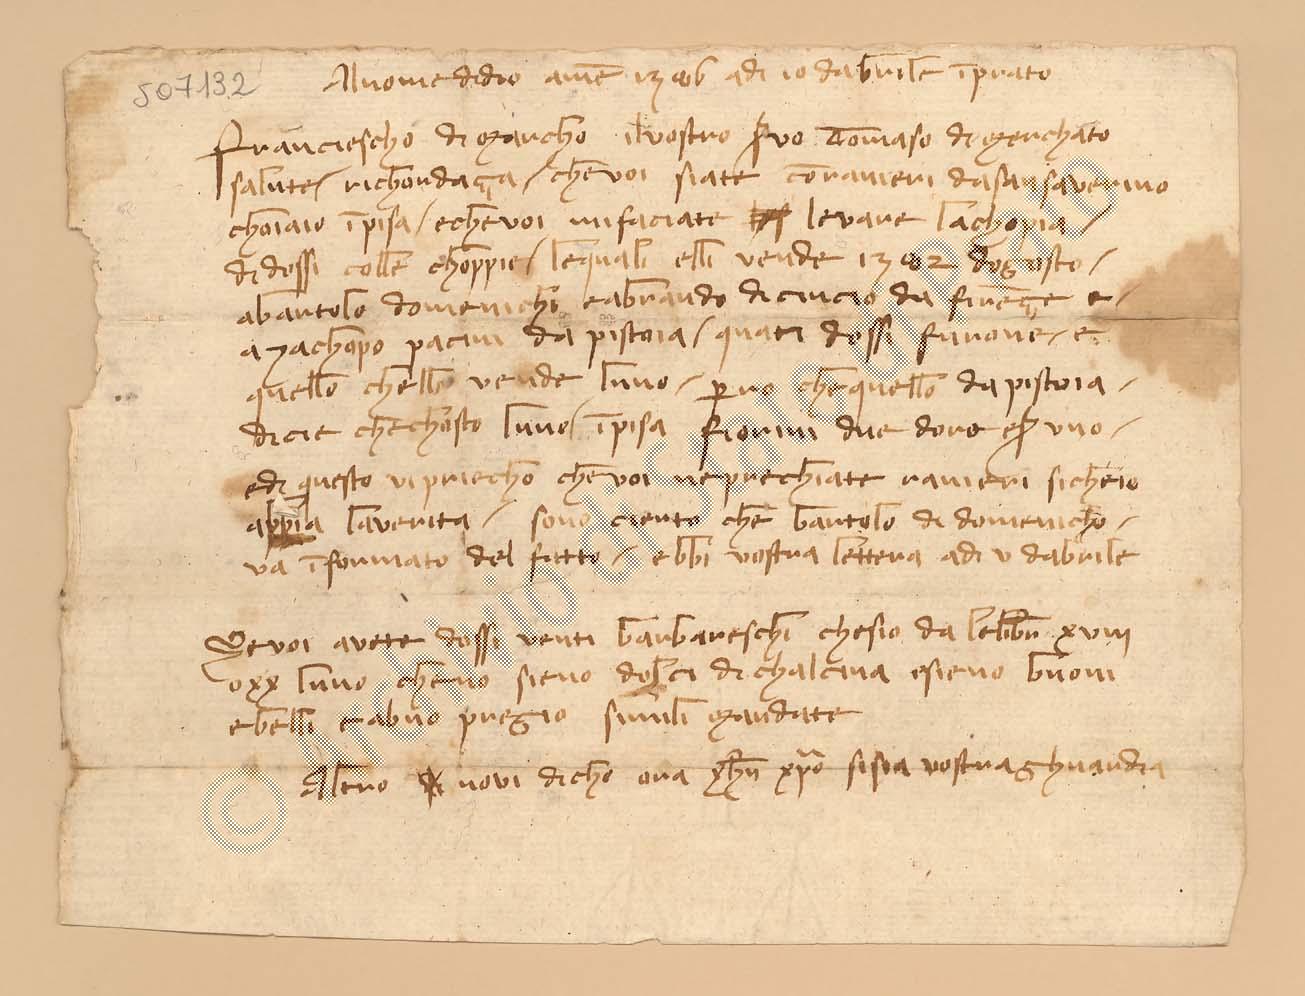 507132
Al nome didio ame 1386 adi 10 dabrile i prato
Franciescho di marcho ilvostro s vo Tomaso di merchato
salute / richordaça / che voi siate co ranieri da sansaverino
choiaio i pisa / e che voi mi faciate levare la chopia /
di dossi colle choppie / lequali elli vende 1382 dogosto /
a bartolo domenichi e a brando di cincio da firençe e /
a jachopo pacini da pistoia / quati dossi furono / e
quello chelli vende luno / per no che quello da pistoia /
dicie che chosto luno / i pisa fiorini due doro e s uno /
e di questo vi priecho che voi ne prechiate ranieri siche io
appia laverita / sono cierto che bartolo di domenicho /
va iformato del fatto / ebbi vostra lettera adi v dabrile
Se voi avete dossi venti barbareschi chesio da lebbr xviii
o xx luno che no sieno dolci di chalcina e sieno buoni
e belli e a buo pregio simili mandate
Altro novi dicho ora yhu xpo si sia vostra ghuardia
© Archivio di Stato di Prato